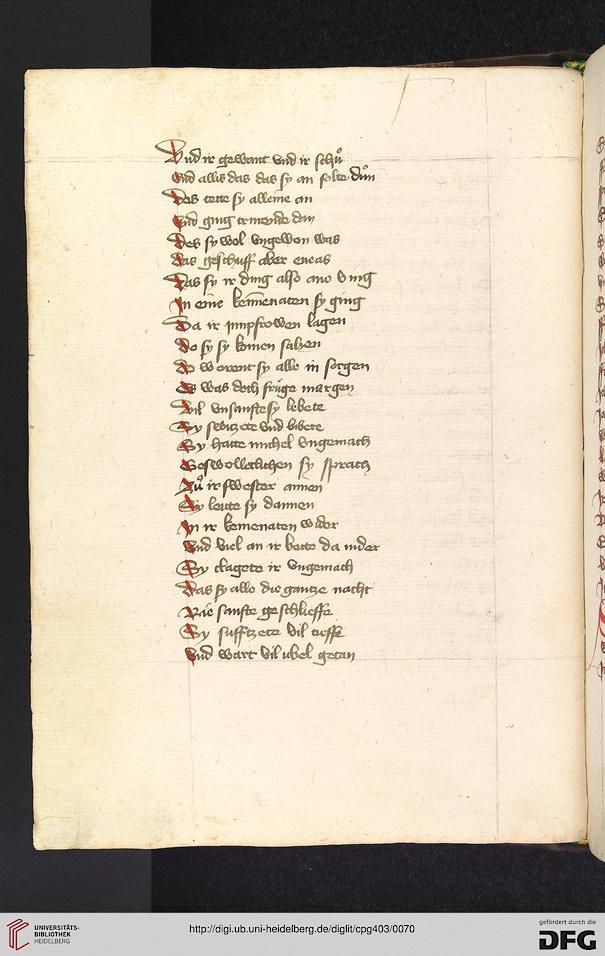 Vnd ir gewant vnd ir schuͦ
Vnd allis das das sy an solte duͦn
Des tette sy alleine an
Vnd ging trurende dan
Des sy wol vngewon was
Das geschuff aber eneas
Das sy ir ding also ane ving
In eine kem̄enaten sy ging
Da ir jungfrowen lagen
Do sy sy komen sahen
Do worent sy alle in sorgen
Es was doch fruͤge margen
Vil vnsanfte sy lebete
Sy switzete vnd bibete
Sy hatte michel vngemach
Goswolleclichen sy sprach
Zuͦ ir swester annen
Sy leitte sy dannen
In ir kemenaten wider
Vnd viel an ir bette da nider
Sy clagete ir vngemach
Das sy alle die gantze nacht
Nie sanfte geschlieffe
Sy sufftzete vil tieffe
Vnd wart vil ubel getan
UNIVERSITÄTS-
BIBLIOTHEK
HEIDELBERG
http://digi.ub.uni-heidelberg.de/diglit/cpg403/0070
gefördert durch die
DFG